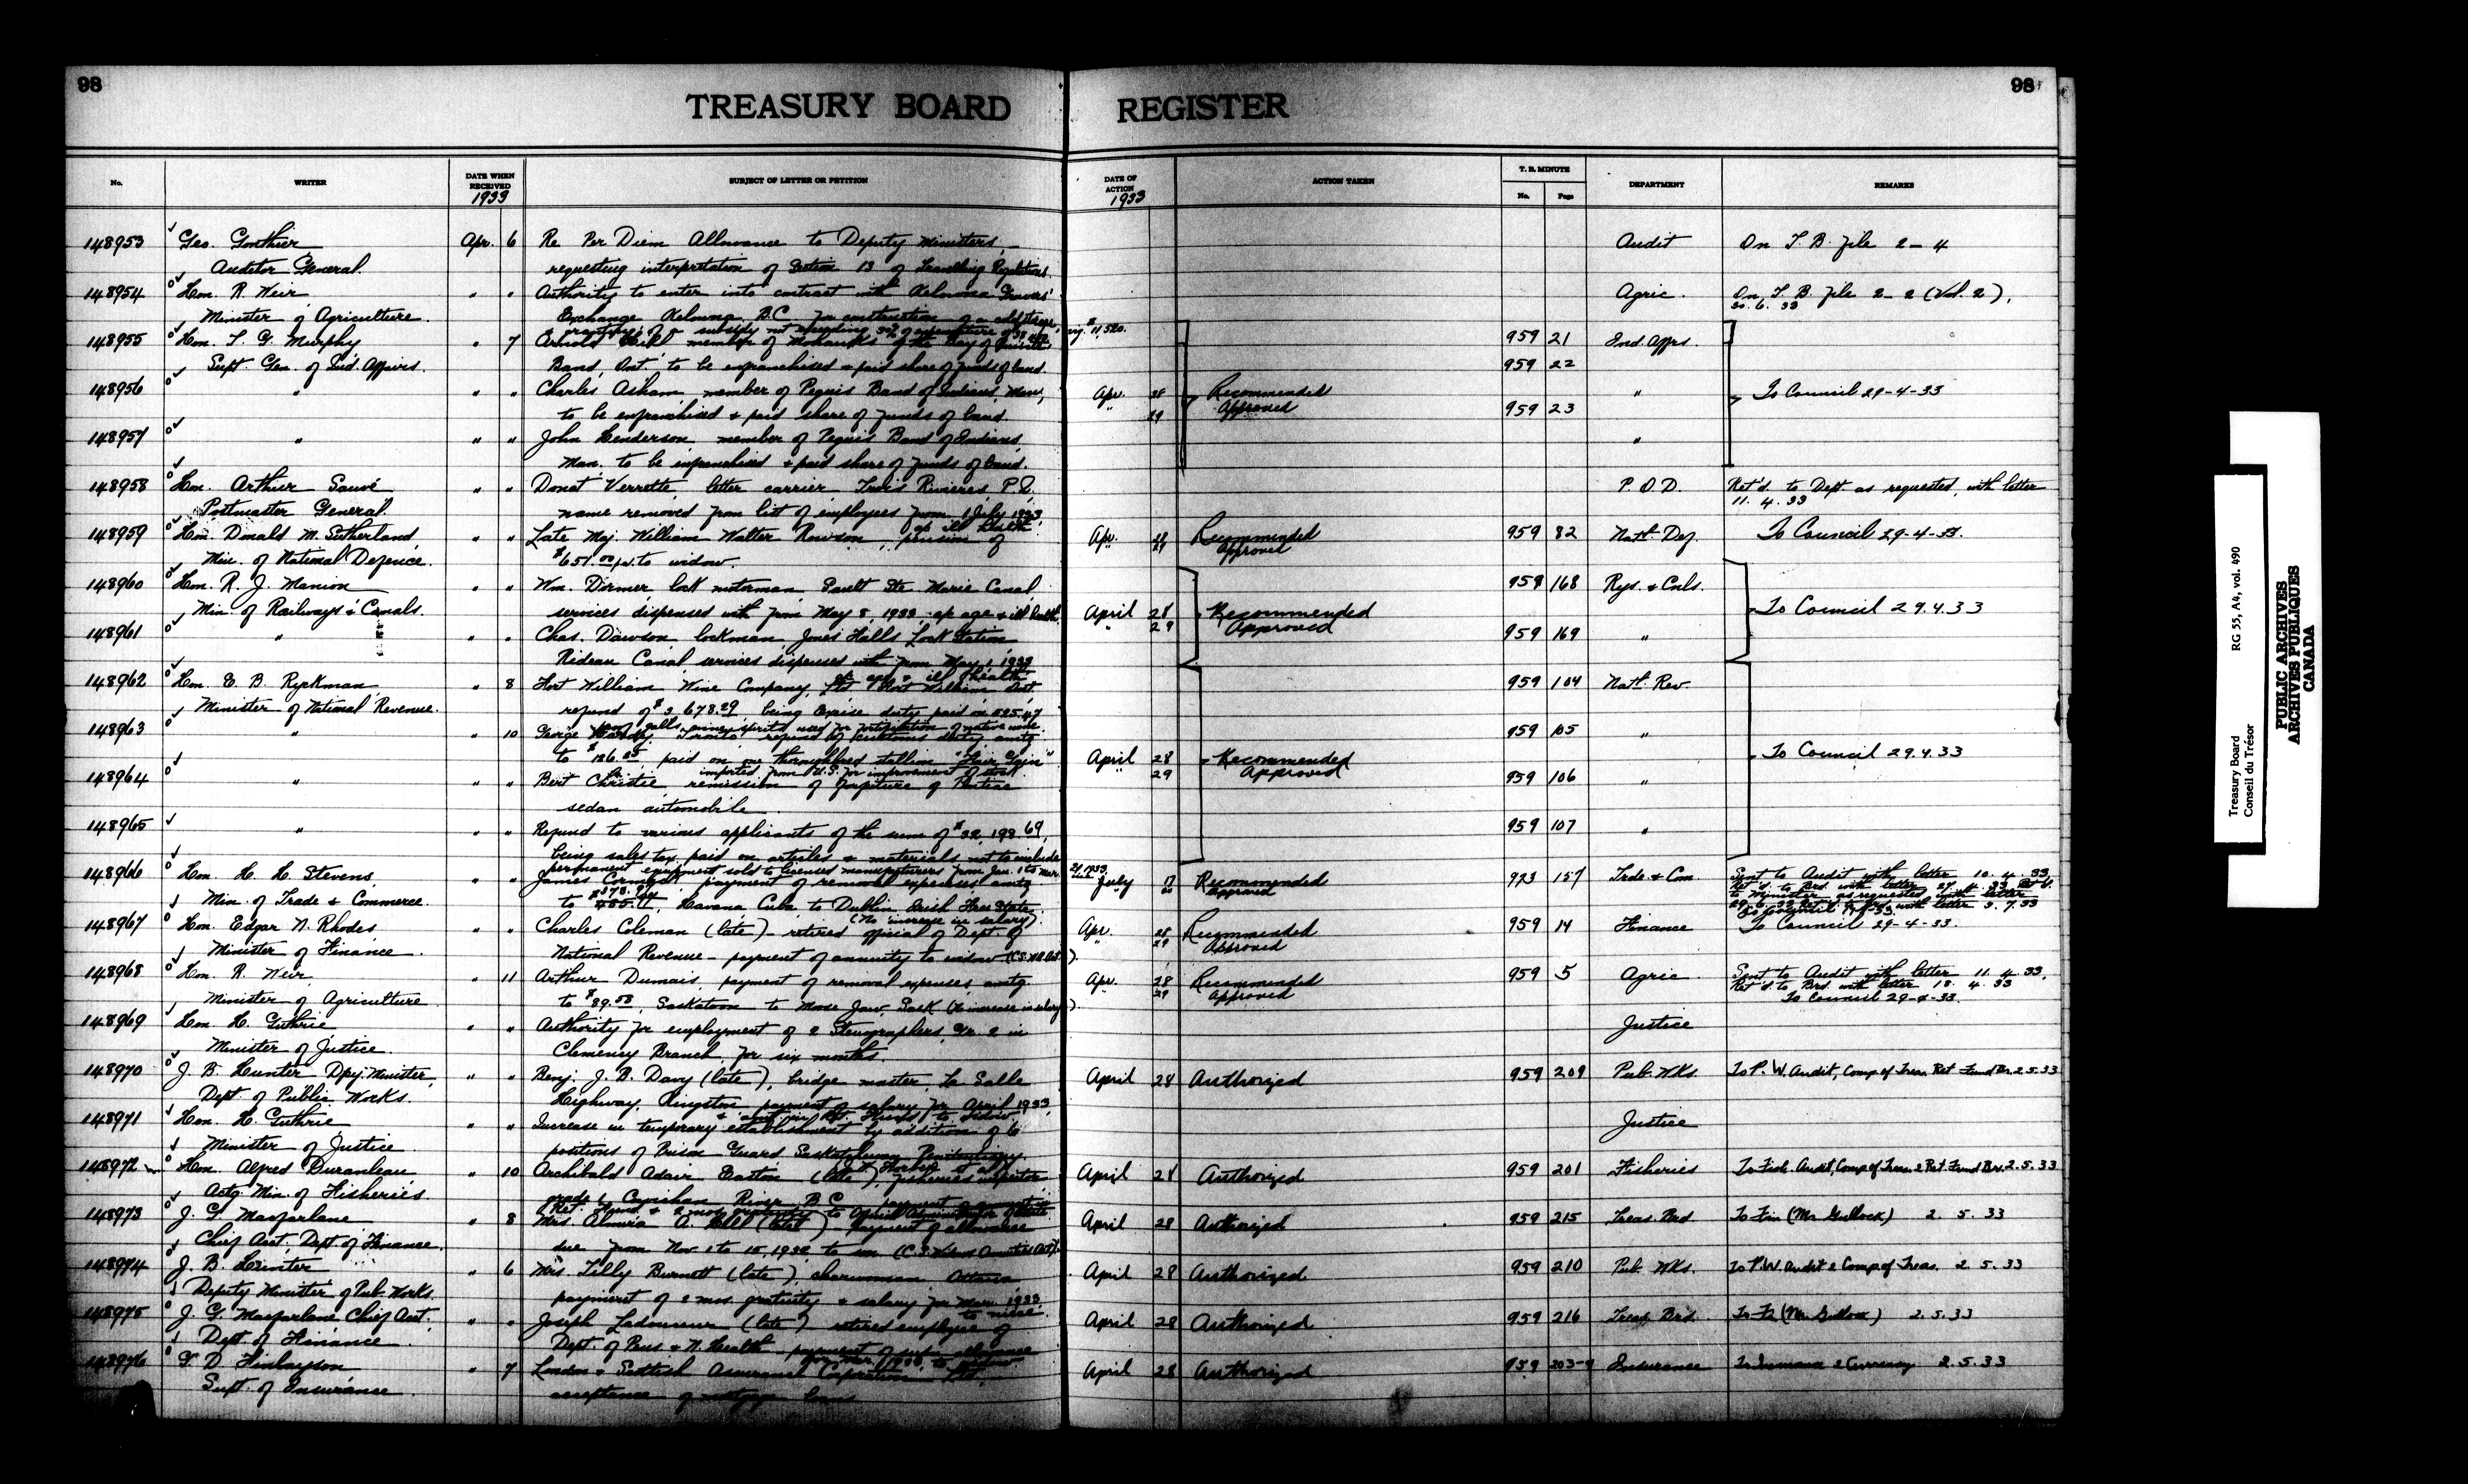 98
98
TREASURY BOARD REGISTER
No. WRITER DATE WHEN RECEIVED 1933 SUBJECT OF LETTER OR PETITION DATE OF ACTION 1933 ACTION TAKEN T. B. MINUTE No. Page DEPARTMENT REMARKS
148953 Geo. Gonthier Apr. 6 Re Per Diem Allowance to Deputy Ministers, Audit On T. B. File 2-4
Auditor General. requesting interpretation of Section 13 of Travelling Regulations.
148954 Hon. R. Weir " " Authority to enter into contract with Kelowna Growers' Agric. On T. B. File 2-2 (Vol. 2).
Minister of Agriculture. Exchange Kelowna, B.C. for construction of a cold storage 20. 6. 33
148955 Hon. T. G. Murphy " 7 Arnold Hill member of Mohawks of the Bay of Quinte 959 21 Ind. Affrs.
Supt. Gen. of Ind. Affairs. Band, Ont. to be enfranchised & paid share of funds of band. 959 22
148956 " " " Charles Asham, member of Peguis Band of Indians, Man., Apr. 28 Recommended " To Council 29-4-33
to be enfranchised & paid share of funds of band. " 29 Approved 959 23
148957 " " " John Henderson member of Peguis Band of Indians "
Man. to be enfranchised & paid share of funds of band.
148958 Hon. Arthur Sauvé " " Donat Verrette, letter carrier Trois Rivieres P.Q. P. O. D. Ret'd. to Dept. as requested, with letter
Postmaster General. name removed from list of employees from 1 July 1933 11. 4. 33
148959 Hon. Donald M. Sutherland " " Late Maj. William Walter Rowson, pension of Apr. 28 Recommended 959 82 Natl. Def. To Council 29-4-33.
Min. of National Defence. $651.00 p.a. to widow. " 29 Approved
148960 Hon. R. J. Manion " " Wm. Dormer, lock motorman, Sault Ste. Marie Canal, 959 168 Rys. & Cnls.
Min. of Railways & Canals. services dispensed with from May 8, 1933 a/c age & ill health. April 28 Recommended To Council 29.4.33
148961 " " " Chas. Dawson lockman, Jones Falls Lock Station " 29 Approved 959 169 "
Rideau Canal services dispensed with from May 1, 1933
a/c age & ill health
148962 Hon. E. B. Ryckman " 8 Fort William Wine Company, Ltd. Fort William Ont. 959 104 Natl. Rev.
Minister of National Revenue. refund of $3,678.29 being Excise duty paid on 525.47
148963 " " 10 George Toronto refund of customs duty amtg. 959 105 "
to $126.05, paid on one thoroughbred stallion April 28 Recommended To Council 29.4.33
imported from U.S. for improvement of stock
148964 " " " Bert Christie, remission of forfeiture of Pontiac " 29 Approved 959 106 "
sedan automobile.
148965 " " " Refund to various applicants of the sum of $32,198.69, 959 107 "
being sales tax paid on articles & materials not to include
permanent equipment sold to licensed manufacturers from Jan. 1 to Mar.
148966 Hon. H. H. Stevens " " James Cormack payment of removal expenses amtg. July 17 Recommended 973 157 Trde. & Com. Sent to Audit with letter 10. 4. 33
Min. of Trade & Commerce. to Havana Cuba to Dublin Irish Free State Approved
(No increase in salary)
148967 Hon. Edgar N. Rhodes " " Charles Coleman (late) - retired official of Dept. of Apr. 28 Recommended 959 14 Finance To Council 29-4-33.
Minister of Finance. National Revenue - payment of annuity to widow " 29 Approved
148968 Hon. R. Weir " 11 Arthur Dumais, payment of removal expenses amtg. Apr. 28 Recommended 959 5 Agric. Sent to Audit with letter 11. 4. 33.
Ret'd. to Brd. with letter 18. 4. 33
Minister of Agriculture. to $89.58, Saskatoon to Moose Jaw, Sask. (No increase in salary). " 29 Approved To Council 29-4-33.
148969 Hon. H. Guthrie " " Authority for employment of 2 Stenographers, Gr. 2 in Justice
Minister of Justice. Clemency Branch, for six months.
148970 J. B. Hunter Dpy. Minister, " " Benj. J. B. Davy (late), bridge master, La Salle April 28 Authorized 959 209 Pub. Wks. To P. W. Audit, Comp. of Treas. Ret. Fund Br. 2.5.33
Dept. of Public Works. Highway, Kingston payment of salary for April 1933
& amt. in Ret. Fund to widow.
148971 Hon. H. Guthrie " " Increase in temporary establishment by addition of 6 Justice
Minister of Justice. positions of Prison Guard Saskatchewan Penitentiary.
148972 Hon. Alfred Duranleau " 10 Archibald Adair Easton (late), fisheries inspector April 28 Authorized 959 201 Fisheries To Fish. Audit, Comp. of Treas. & Ret. Fund Br. 2.5.33
Actg. Min. of Fisheries. grade 1 Cowichan River, B.C.
148973 J. G. Macfarlane " 8 Mrs. Almira A. Hill (late) payment of allowance April 28 Authorized 959 215 Treas. Brd. To Fin (Mr. Gullock) 2. 5. 33
Chief Acct. Dept. of Finance. due from Nov. 1 to 15, 1932 to son
148974 J. B. Hunter " 6 Mrs. Tilly Burnett (late), charwoman Ottawa April 28 Authorized 959 210 Pub. Wks. To P.W. Audit & Comp. of Treas. 2. 5. 33
Deputy Minister of Pub. Works. payment of 2 mos. gratuity & salary for Mar. 1933
to niece.
148975 J. G. Macfarlane Chief Acct. " " Joseph Ladouceur (late) retired employee of April 28 Authorized 959 216 Treas. Brd. To Fin (Mr. Gullock) 2.5.33
Dept. of Finance. Dept. of Pens. & N. Health
148976 G. D. Finlayson " 7 London & Scottish Assurance Corporation Ltd., April 28 Authorized 959 203-4 Insurance To Insurance & Currency 2.5.33
Supt. of Insurance. acceptance of mortgage loans
Treasury Board RG 55, A4, vol. 490
Conseil du Trésor
PUBLIC ARCHIVES
ARCHIVES PUBLIQUES
CANADA